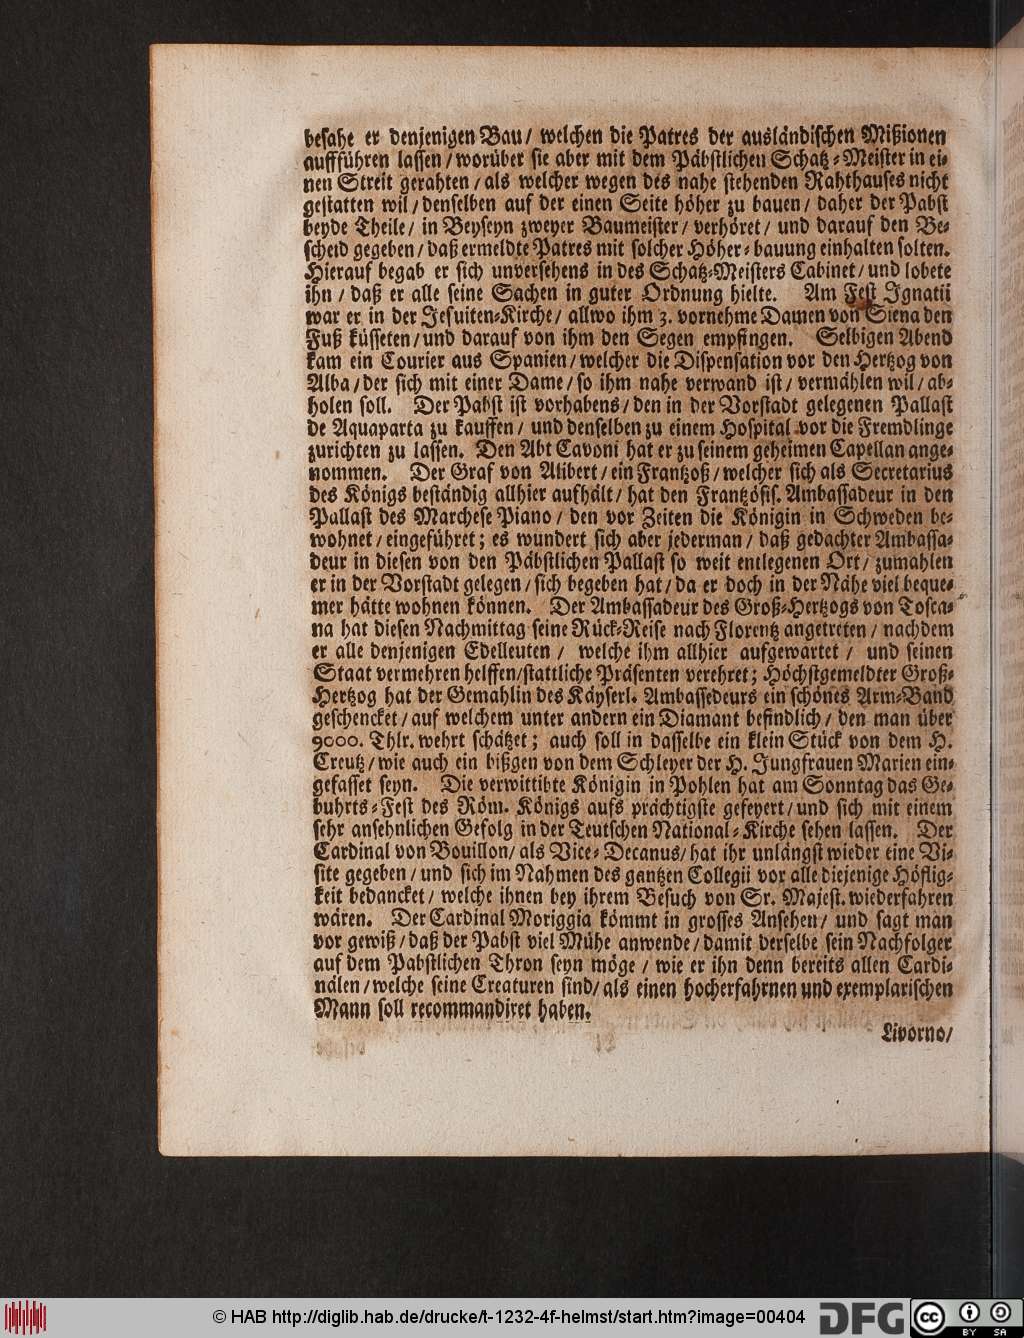 besahe er denjenigen Bau / welchen die Patres der ausländischen Mißionen
auffführen lassen / worüber sie aber mit dem Päbstlichen Schatz-Meister in ei-
nen Streit gerahten / als welcher wegen des nahe stehenden Rahthauses nicht
gestatten wil / denselben auf der einen Seite höher zu bauen / daher der Pabst
beyde Theile / in Beyseyn zweyer Baumeister / verhöret / und darauf den Be-
scheid gegeben / daß ermeldte Patres mit solcher Höher-bauung einhalten solten.
Hierauf begab er sich unversehens in des Schatz-Meisters Cabinet / und lobete
ihn / daß er alle seine Sachen in guter Ordnung hielte. Am Fest Ignatii
war er in der Jesuiten-Kirche / allwo ihm 3. vornehme Damen von Siena den
Fuß küsseten / und darauf von ihm den Segen empfingen. Selbigen Abend
kam ein Courier aus Spanien / welcher die Dispensation vor den Hertzog von
Alba / der sich mit einer Dame / so ihm nahe verwand ist / vermählen wil / ab-
holen soll. Der Pabst ist vorhabens / den in der Vorstadt gelegenen Pallast
de Aquaparta zu kauffen / und denselben zu einem Hospital vor die Fremdlinge
zurichten zu lassen. Den Abt Cavoni hat er zu seinem geheimen Capellan ange-
nommen. Der Graf von Alibert / ein Frantzoß / welcher sich als Secretarius
des Königs beständig allhier aufhält / hat den Frantzösis. Ambassadeur in den
Pallast des Marchese Piano / den vor Zeiten die Königin in Schweden be-
wohnet / eingeführet; es wundert sich aber jederman / daß gedachter Ambassa-
deur in diesen von den Päbstlichen Pallast so weit entlegenen Ort / zumahlen
er in der Vorstadt gelegen / sich begeben hat / da er doch in der Nähe viel beque-
mer hätte wohnen können. Der Ambassadeur des Groß-Hertzogs von Tosca-
na hat diesen Nachmittag seine Rück-Reise nach Florentz angetreten / nachdem
er alle denjenigen Edelleuten / welche ihm allhier aufgewartet / und seinen
Staat vermehren helffen / stattliche Präsenten verehret; Höchstgemeldter Groß-
Hertzog hat der Gemahlin des Käyserl. Ambassedeurs ein schönes Arm-Band
geschencket / auf welchem unter andern ein Diamant befindlich / den man über
9000. Thlr. wehrt schätzet; auch soll in dasselbe ein klein Stück von dem H.
Creutz / wie auch ein bißgen von dem Schleyer der H. Jungfrauen Marien ein-
gefasset seyn. Die verwittibte Königin in Pohlen hat am Sonntag das Ge-
buhrts-Fest des Röm. Königs aufs prächtigste gefeyert / und sich mit einem
sehr ansehnlichen Gefolg in der Teutschen National-Kirche sehen lassen. Der
Cardinal von Bouillon / als Vice-Decanus / hat ihr unlängst wieder eine Vi-
site gegeben / und sich im Nahmen des gantzen Collegii vor alle diejenige Höflig-
keit bedancket / welche ihnen bey ihrem Besuch von Sr. Majest. wiederfahren
wären. Der Cardinal Moriggia kömmt in grosses Ansehen / und sagt man
vor gewiß / daß der Pabst viel Mühe anwende / damit derselbe sein Nachfolger
auf dem Pabstlichen Thron seyn möge / wie er ihn denn bereits allen Cardi-
nälen / welche seine Creaturen sind / als einen hocherfahrnen und exemplarischen
Mann soll recommandiret haben.
Livorno /
© HAB http://diglib.hab.de/drucke/t-1232-4f-helmst/start.htm?image=00404
DFG
cc BY SA